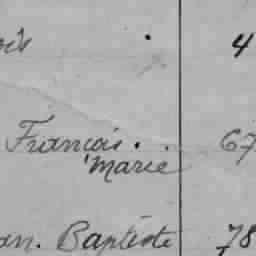 ois . 4
François . . 67
Marie
an. Baptiste 78